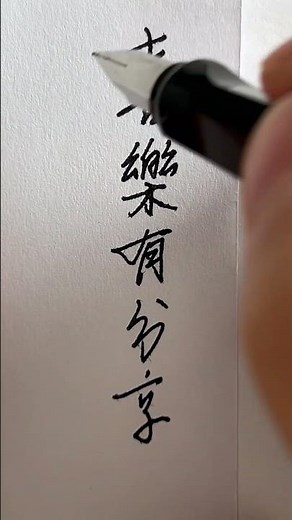 喜樂有分享